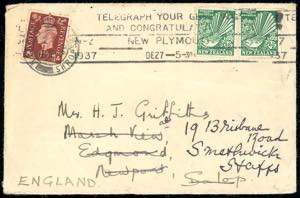 TELEGRAPH YOUR
AND CONGRATULA
NEW PLYMOU
1937 DE27-5 937
NEW ZEALAND NEW ZEALAND
Mrs. H. J. Griffiths
Marsh View
Edgmond
Newport, Salop
19 Brisbane
Road
Smethwick
Staffs
ENGLAND